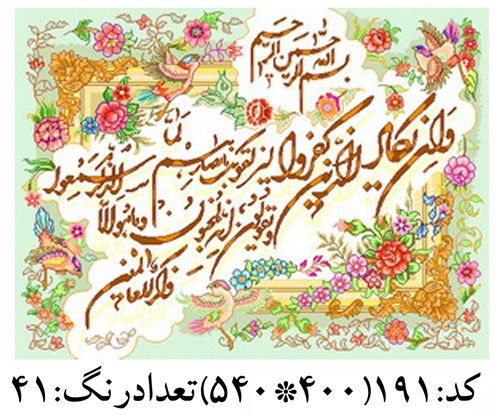 بسم الله الرحمن الرحیم
وان یکاد الذین کفروا لیزلقونک بابصارهم لما
سمعوا الذکر و یقولون انه لمجنون و ما هو الا
ذکر للعالمین
کد:۱۹۱(۴۰۰*۵۴۰)تعدادرنگ:۴۱